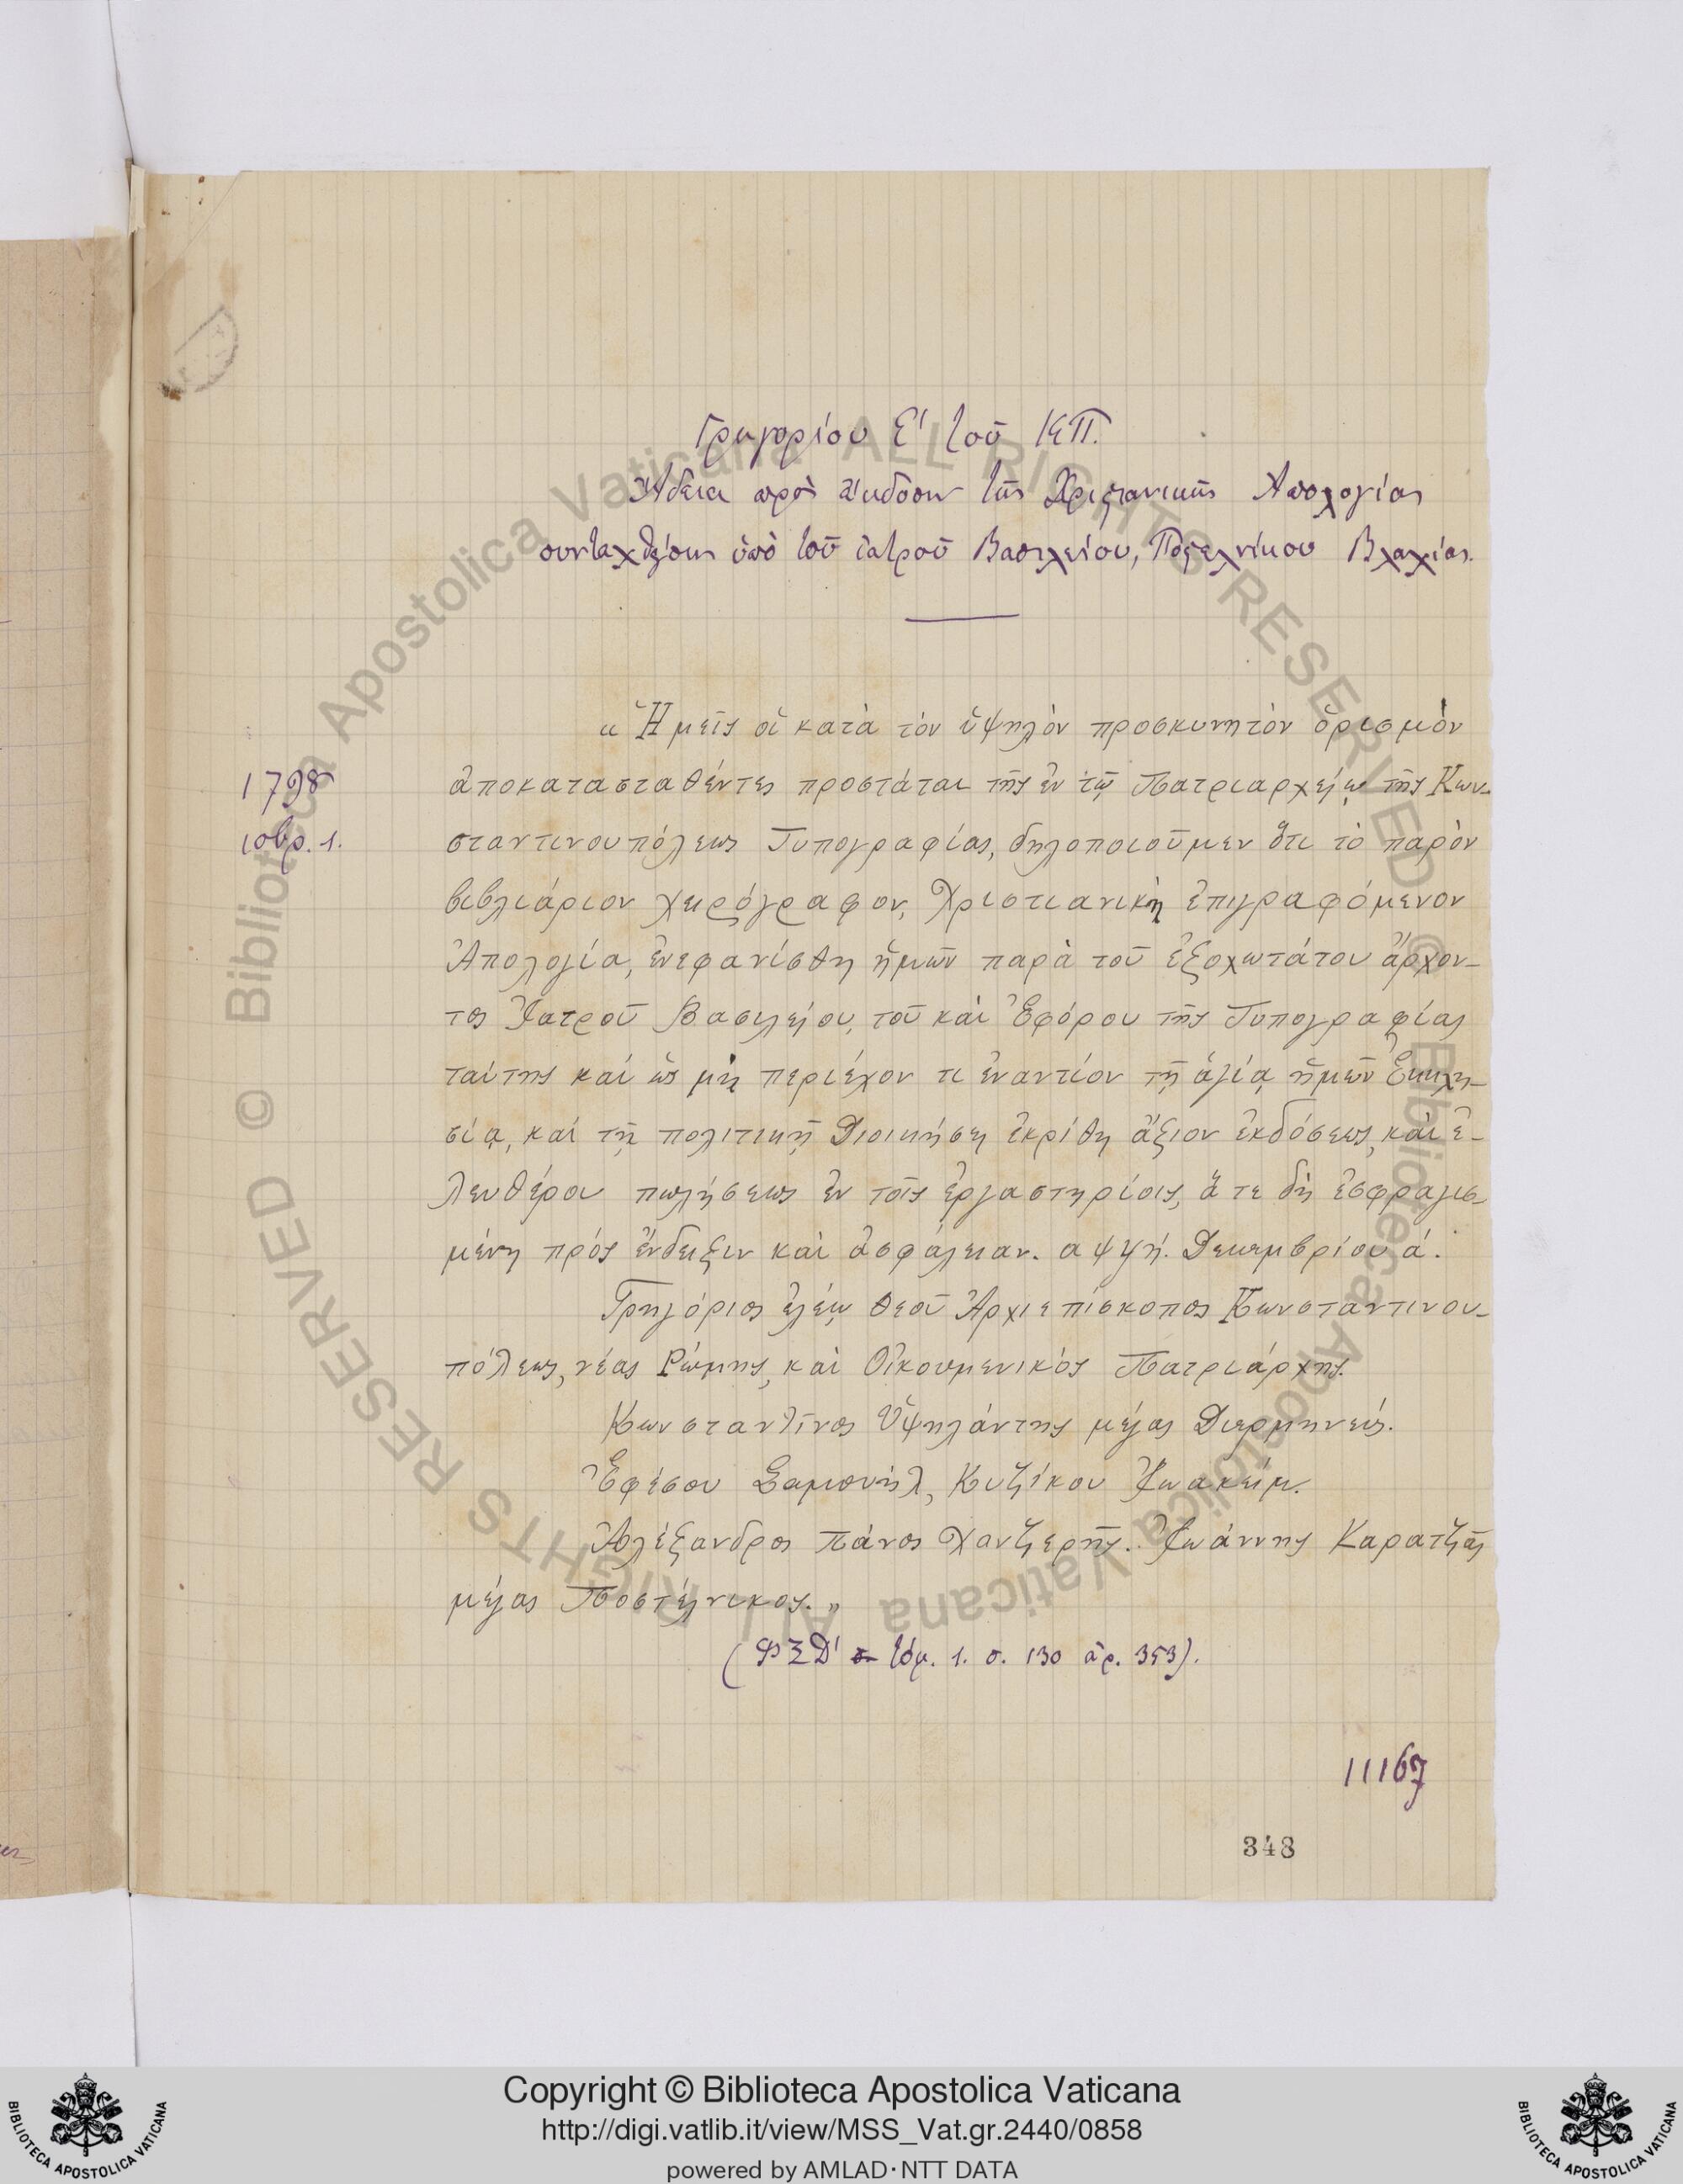 Γρηγορίου Ε' τοῦ ΚΠ.
Ἄδεια πρὸς ἔκδοσιν τῆς Χριστιανικῆς Ἀπολογίας
συνταχθείσης ὑπὸ τοῦ ἰατροῦ Βασιλείου, Ποστελνίκου Βλαχίας.
« Ἡμεῖς οἱ κατὰ τὸν ὑψηλὸν προσκυνητὸν ὁρισμὸν
1798
ἀποκατασταθέντες προστάται τῆς ἐν τῷ Πατριαρχείῳ τῆς Κων-
10βρ. 1.
σταντινουπόλεως Τυπογραφίας, δηλοποιοῦμεν ὅτι τὸ παρὸν
βιβλιάριον χειρόγραφον, Χριστιανικὴ ἐπιγραφόμενον
Ἀπολογία, ἐνεφανίσθη ἡμῖν παρὰ τοῦ ἐξοχωτάτου ἄρχον-
τος Ἰατροῦ Βασιλείου, τοῦ καὶ Ἐφόρου τῆς Τυπογραφίας
ταύτης καί ὡς μὴ περιέχον τι ἐναντίον τῇ ἁγίᾳ ἡμῶν Ἐκκλη-
σίᾳ, καί τῇ πολιτικῇ Διοικήσει ἐκρίθη ἄξιον ἐκδόσεως, καὶ ἐ-
λευθέρου πωλήσεως ἐν τοῖς ἐργαστηρίοις, ἅ τε δὴ ἐσφραγισ-
μένη πρός ἔνδειξιν καὶ ἀσφάλειαν. αψϟή. Δεκεμβρίου ά.
Γρηγόριος ἐλέῳ Θεοῦ Ἀρχιεπίσκοπος Κωνσταντινου-
πόλεως, νέας Ρώμης, καὶ Οἰκουμενικὸς Πατριάρχης.
Κωνσταντῖνος Ὑψηλάντης μέγας Διερμηνεύς.
Ἐφέσου Σαμουήλ, Κυζίκου Ἰωακείμ.
Ἀλέξανδρος Πάνος Χαντζερῆς. Ἰωάννης Καρατζᾶς
μέγας Ποστέλνικος. »
(ΦΣΔ' τόμ. 1. σ. 130 ἀρ. 353).
11167
348
Copyright © Biblioteca Apostolica Vaticana
http://digi.vatlib.it/view/MSS_Vat.gr.2440/0858
powered by AMLAD·NTT DATA
BIBLIOTECA APOSTOLICA VATICANA
BIBLIOTECA APOSTOLICA VATICANA
© Biblioteca Apostolica Vaticana ALL RIGHTS RESERVED © Biblioteca Apostolica Vaticana ALL RIGHTS RESERVED